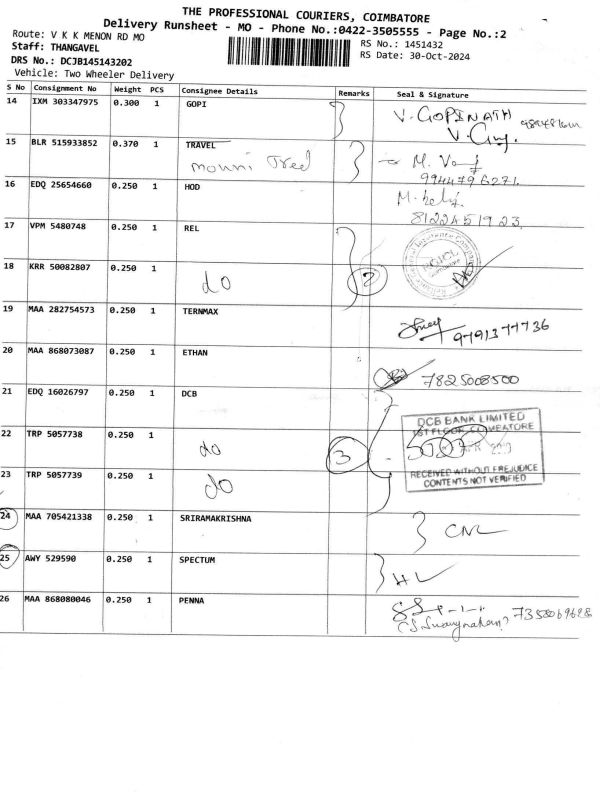 THE PROFESSIONAL COURIERS, COIMBATORE
Delivery Runsheet - MO - Phone No.:0422-3505555 - Page No.:2
Route: V K K MENON RD MO
Staff: THANGAVEL
DRS No.: DCJB145143202
Vehicle: Two Wheeler Delivery
RS No.: 1451432
RS Date: 30-Oct-2024
S No Consignment No Weight PCS Consignee Details Remarks Seal & Signature
14 IXM 303347975 0.300 1 GOPI
V. GOPINATH
15 BLR 515933852 0.370 1 TRAVEL
mouni Tred
M.
9944796271
16 EDQ 25654660 0.250 1 HOD
M.
8122451923
17 VPM 5480748 0.250 1 REL
18 KRR 50082807 0.250 1 do 2
19 MAA 282754573 0.250 1 TERNMAX
9791377736
20 MAA 868073087 0.250 1 ETHAN
7825008500
21 EDQ 16026797 0.250 1 DCB
DCB BANK LIMITED
1ST FLOOR, COIMBATORE
22 TRP 5057738 0.250 1 do 3
RECEIVED WITHOUT PREJUDICE
CONTENTS NOT VERIFIED
23 TRP 5057739 0.250 1 do
24 MAA 705421338 0.250 1 SRIRAMAKRISHNA
25 AWY 529590 0.250 1 SPECTUM
26 MAA 868080046 0.250 1 PENNA
7358069628